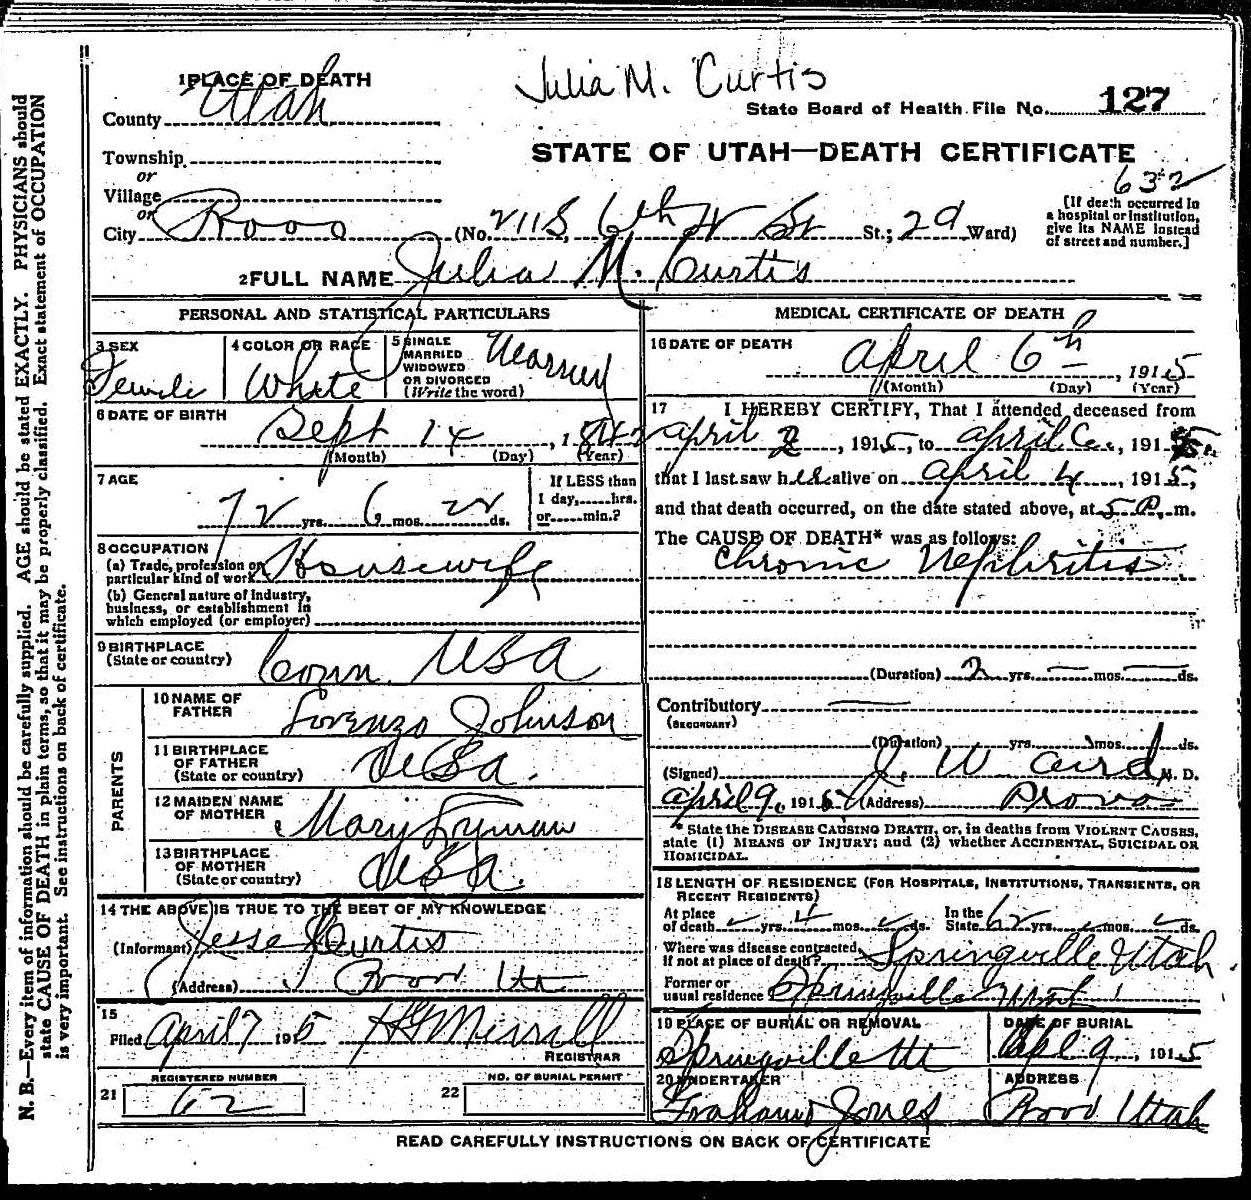 Julia M. Curtis
1 PLACE OF DEATH
County Utah
State Board of Health File No. 127
Township
or
Village
or
City Provo
STATE OF UTAH—DEATH CERTIFICATE
632
(No. 211 S, 6th W St St.; 2d Ward)
[If death occurred in a hospital or institution, give its NAME instead of street and number.]
2 FULL NAME Julia M. Curtis
PERSONAL AND STATISTICAL PARTICULARS
3 SEX Female
4 COLOR OR RACE White
5 SINGLE MARRIED WIDOWED OR DIVORCED (Write the word) Married
6 DATE OF BIRTH Sept 14, 1842
(Month) (Day) (Year)
7 AGE
72 yrs. 6 mos. 22 ds.
If LESS than 1 day,......hrs. or......min.?
8 OCCUPATION
(a) Trade, profession or particular kind of work Housewife
(b) General nature of industry, business, or establishment in which employed (or employer)
9 BIRTHPLACE
(State or country) Conn. USA
PARENTS
10 NAME OF FATHER Lorenzo Johnson
11 BIRTHPLACE OF FATHER (State or country) USA.
12 MAIDEN NAME OF MOTHER Mary Lyman
13 BIRTHPLACE OF MOTHER (State or country) USA.
14 THE ABOVE IS TRUE TO THE BEST OF MY KNOWLEDGE
(Informant) Jesse Curtis
(Address) Provo Ut
15
Filed April 7 1915 H G Merrill
REGISTRAR
REGISTERED NUMBER
21 62
NO. OF BURIAL PERMIT
22
MEDICAL CERTIFICATE OF DEATH
16 DATE OF DEATH
April 6th, 1915
(Month) (Day) (Year)
17 I HEREBY CERTIFY, That I attended deceased from
April 2, 1915, to April 6, 1915
that I last saw her alive on April 4, 1915,
and that death occurred, on the date stated above, at 5 P. m.
The CAUSE OF DEATH* was as follows:
Chronic Nephritis
(Duration) 2 yrs. — mos. — ds.
Contributory —
(SECONDARY)
(Duration) yrs. mos. ds.
(Signed) J. W Aird, M. D.
April 9, 1915 (Address) Provo
* State the DISEASE CAUSING DEATH, or, in deaths from VIOLENT CAUSES,
state (1) MEANS OF INJURY; and (2) whether ACCIDENTAL, SUICIDAL OR
HOMICIDAL.
18 LENGTH OF RESIDENCE (FOR HOSPITALS, INSTITUTIONS, TRANSIENTS, OR
RECENT RESIDENTS)
At place of death yrs. 4 mos. ds. In the State 62 yrs. mos. ds.
Where was disease contracted,
If not at place of death? Springville Utah
Former or
usual residence Springville Utah
19 PLACE OF BURIAL OR REMOVAL
Springville Ut
DATE OF BURIAL
Apl 9, 1915
20 UNDERTAKER
Graham & Jones
ADDRESS
Provo Utah
READ CAREFULLY INSTRUCTIONS ON BACK OF CERTIFICATE
N. B.—Every item of information should be carefully supplied. AGE should be stated EXACTLY. PHYSICIANS should
state CAUSE OF DEATH in plain terms, so that it may be properly classified. Exact statement of OCCUPATION
is very important. See instructions on back of certificate.